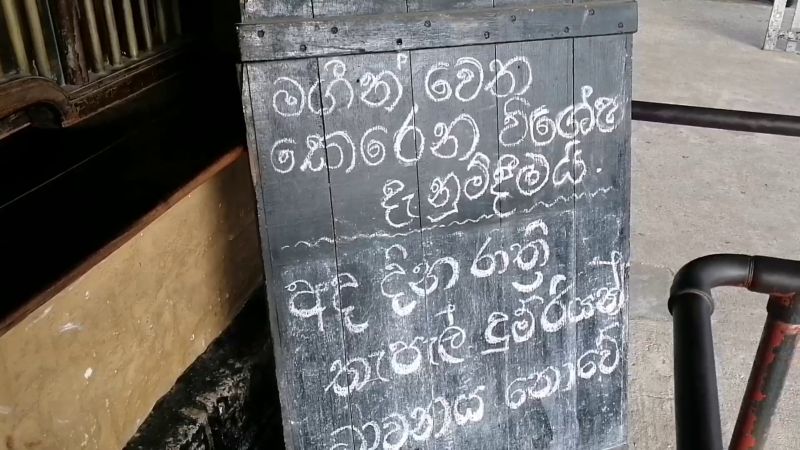 මගීන් වෙත
කෙරෙන විශේෂ
දැනුම්දීමයි.
අද දින රාත්‍රී
තැපැල් දුම්රියන්
ධාවනය නොවේ